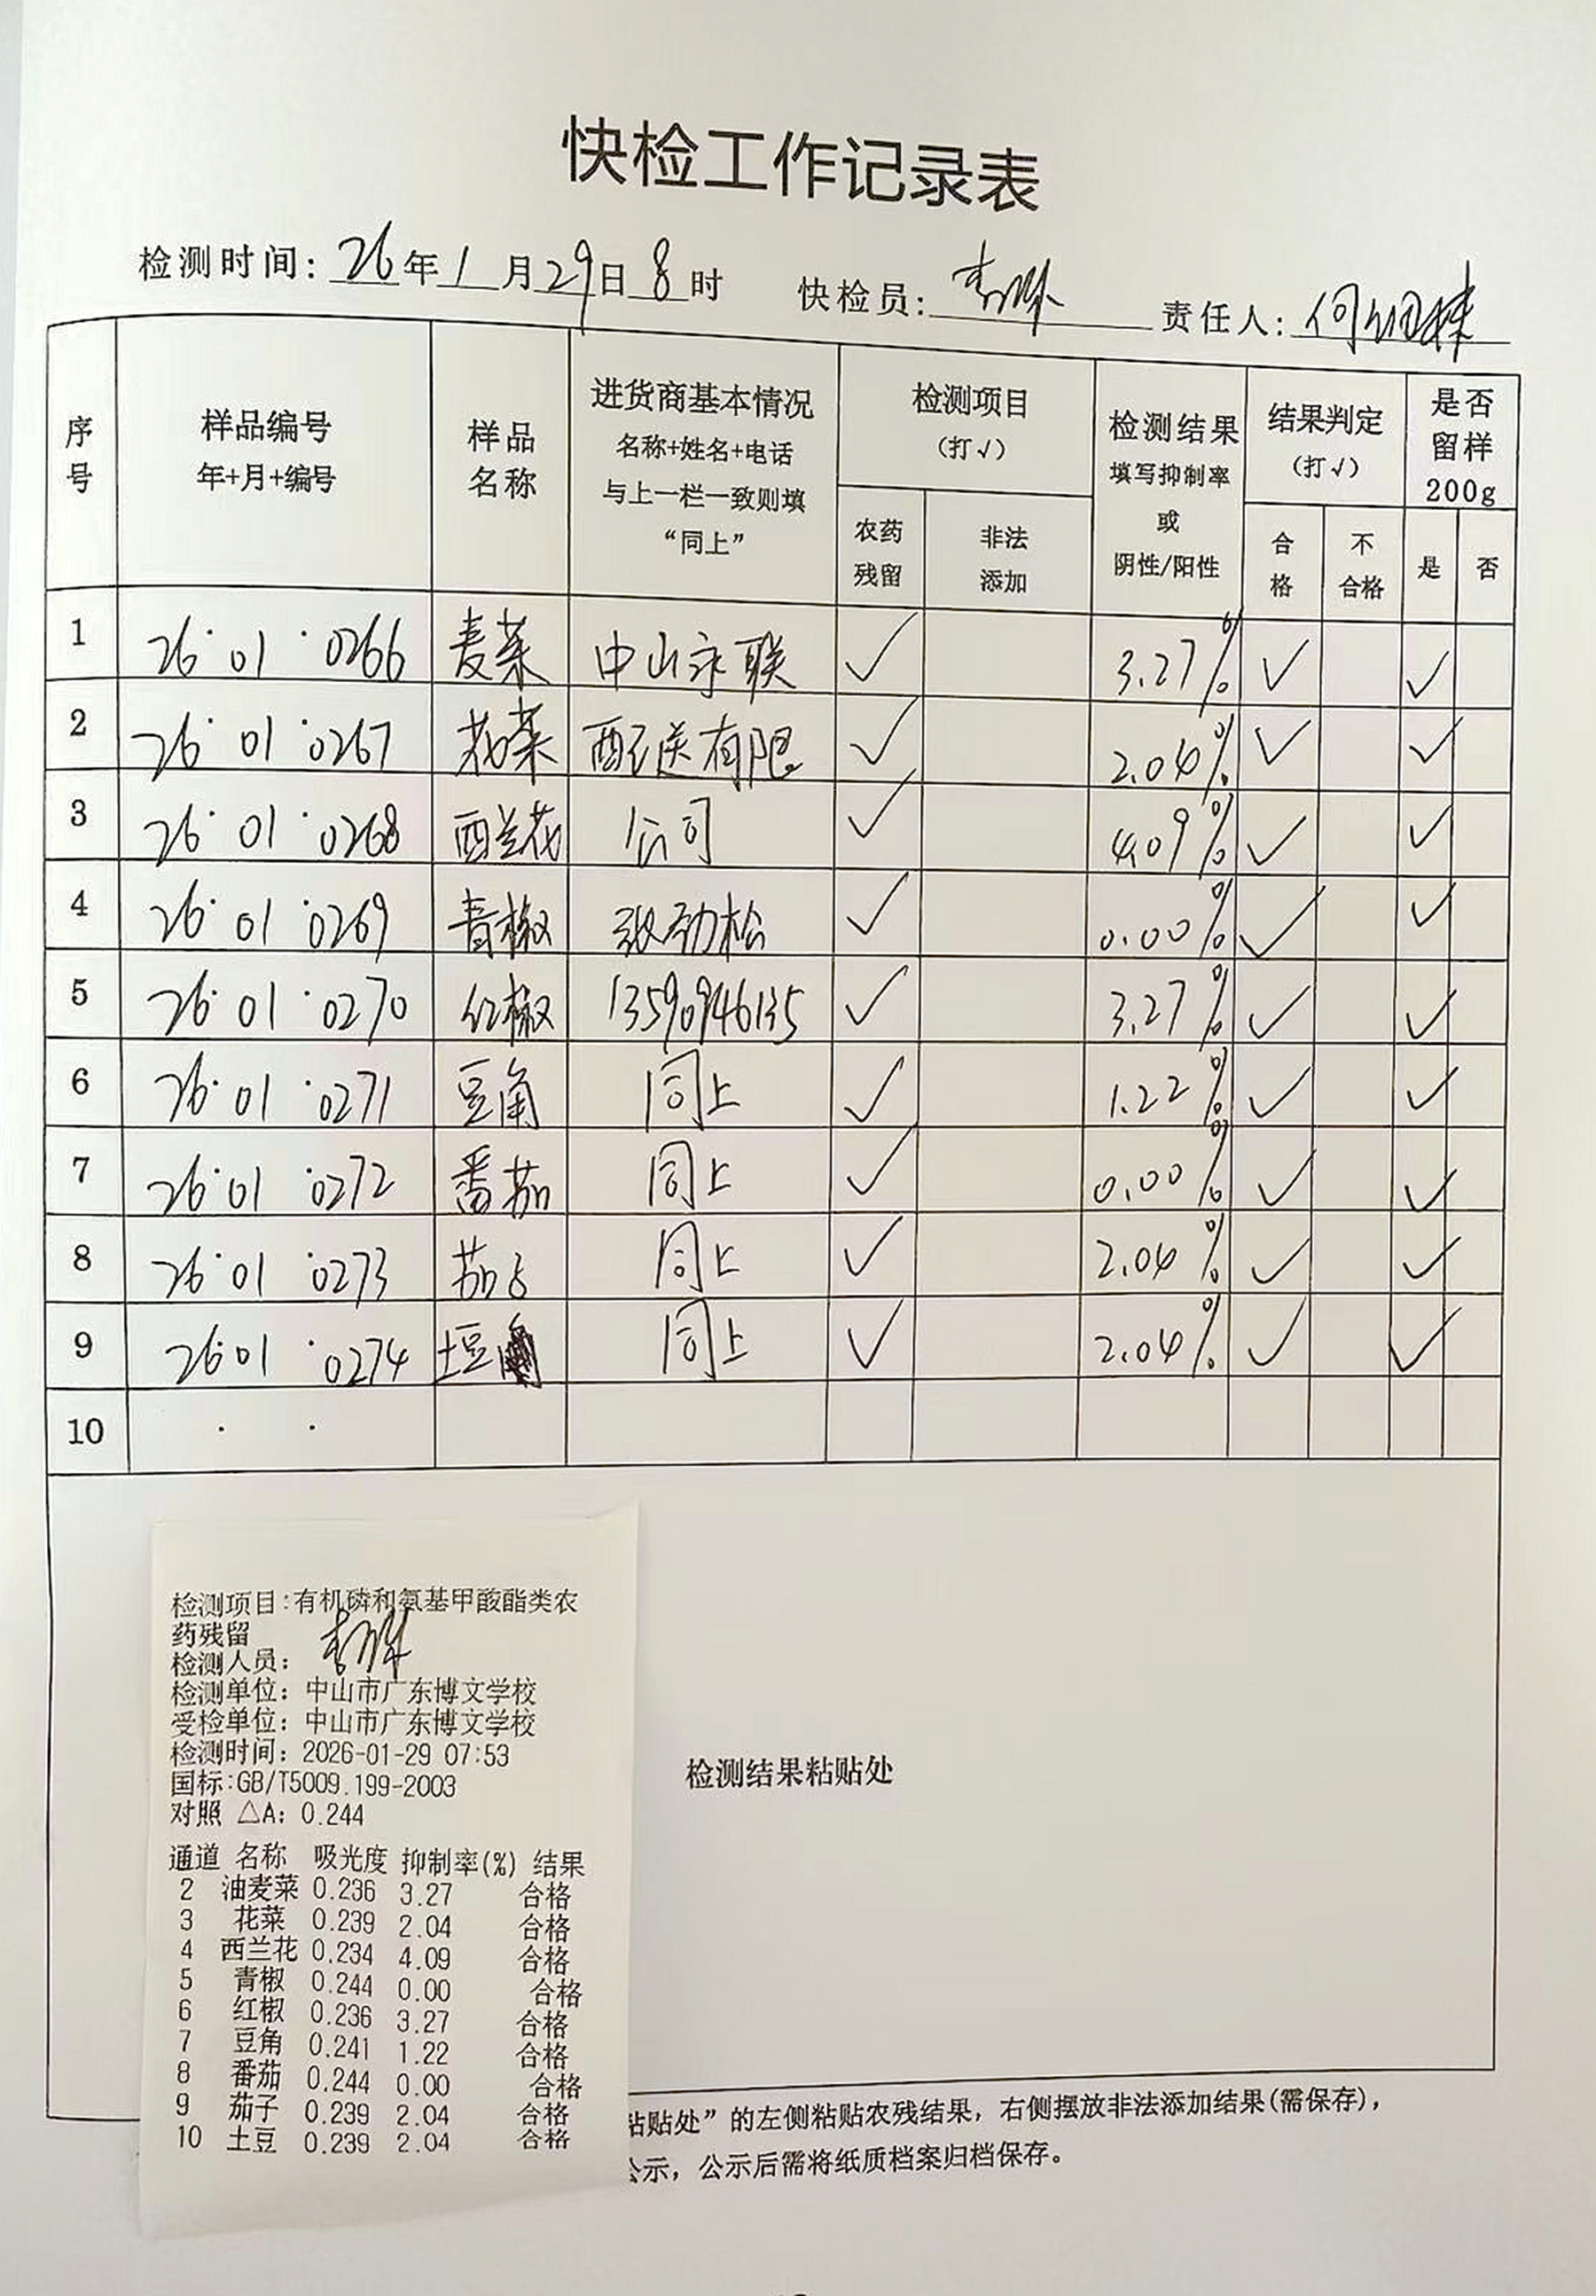 快检工作记录表
检测时间: 26年1月29日8时 快检员: 责任人:
序号 样品编号 年+月+编号 样品名称 进货商基本情况 名称+姓名+电话 与上一栏一致则填 “同上” 检测项目 (打√) 农药残留 非法添加 检测结果 填写抑制率 或 阴性/阳性 结果判定 (打√) 合格 不合格 是否留样 200g 是 否
1 26·01·0266 麦菜 中山永联 ✓ 3.27% ✓ ✓
2 26·01·0267 花菜 配送有限 ✓ 2.04% ✓ ✓
3 26·01·0268 西兰花 公司 ✓ 4.09% ✓ ✓
4 26·01·0269 青椒 张劲松 ✓ 0.00% ✓ ✓
5 26·01·0270 红椒 13590946135 ✓ 3.27% ✓ ✓
6 26·01·0271 豆角 同上 ✓ 1.22% ✓ ✓
7 26·01·0272 番茄 同上 ✓ 0.00% ✓ ✓
8 26·01·0273 茄子 同上 ✓ 2.04% ✓ ✓
9 26·01·0274 土豆 同上 ✓ 2.04% ✓ ✓
10 · ·
检测项目:有机磷和氨基甲酸酯类农
药残留
检测人员:
检测单位: 中山市广东博文学校
受检单位: 中山市广东博文学校
检测时间: 2026-01-29 07:53
国标:GB/T5009.199-2003
对照 △A: 0.244
通道 名称 吸光度 抑制率(%) 结果
2 油麦菜 0.236 3.27 合格
3 花菜 0.239 2.04 合格
4 西兰花 0.234 4.09 合格
5 青椒 0.244 0.00 合格
6 红椒 0.236 3.27 合格
7 豆角 0.241 1.22 合格
8 番茄 0.244 0.00 合格
9 茄子 0.239 2.04 合格
10 土豆 0.239 2.04 合格
检测结果粘贴处
粘贴处”的左侧粘贴农残结果，右侧摆放非法添加结果(需保存)，
公示，公示后需将纸质档案归档保存。